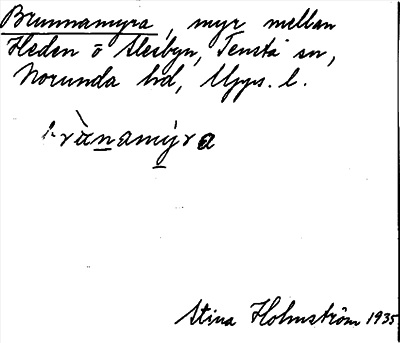 Brunnamyra, myr mellan
Heden o Åleibyn, Tensta sn,
Norunda hd, Upps. l.
brànamýra
Stina Holmström 1935